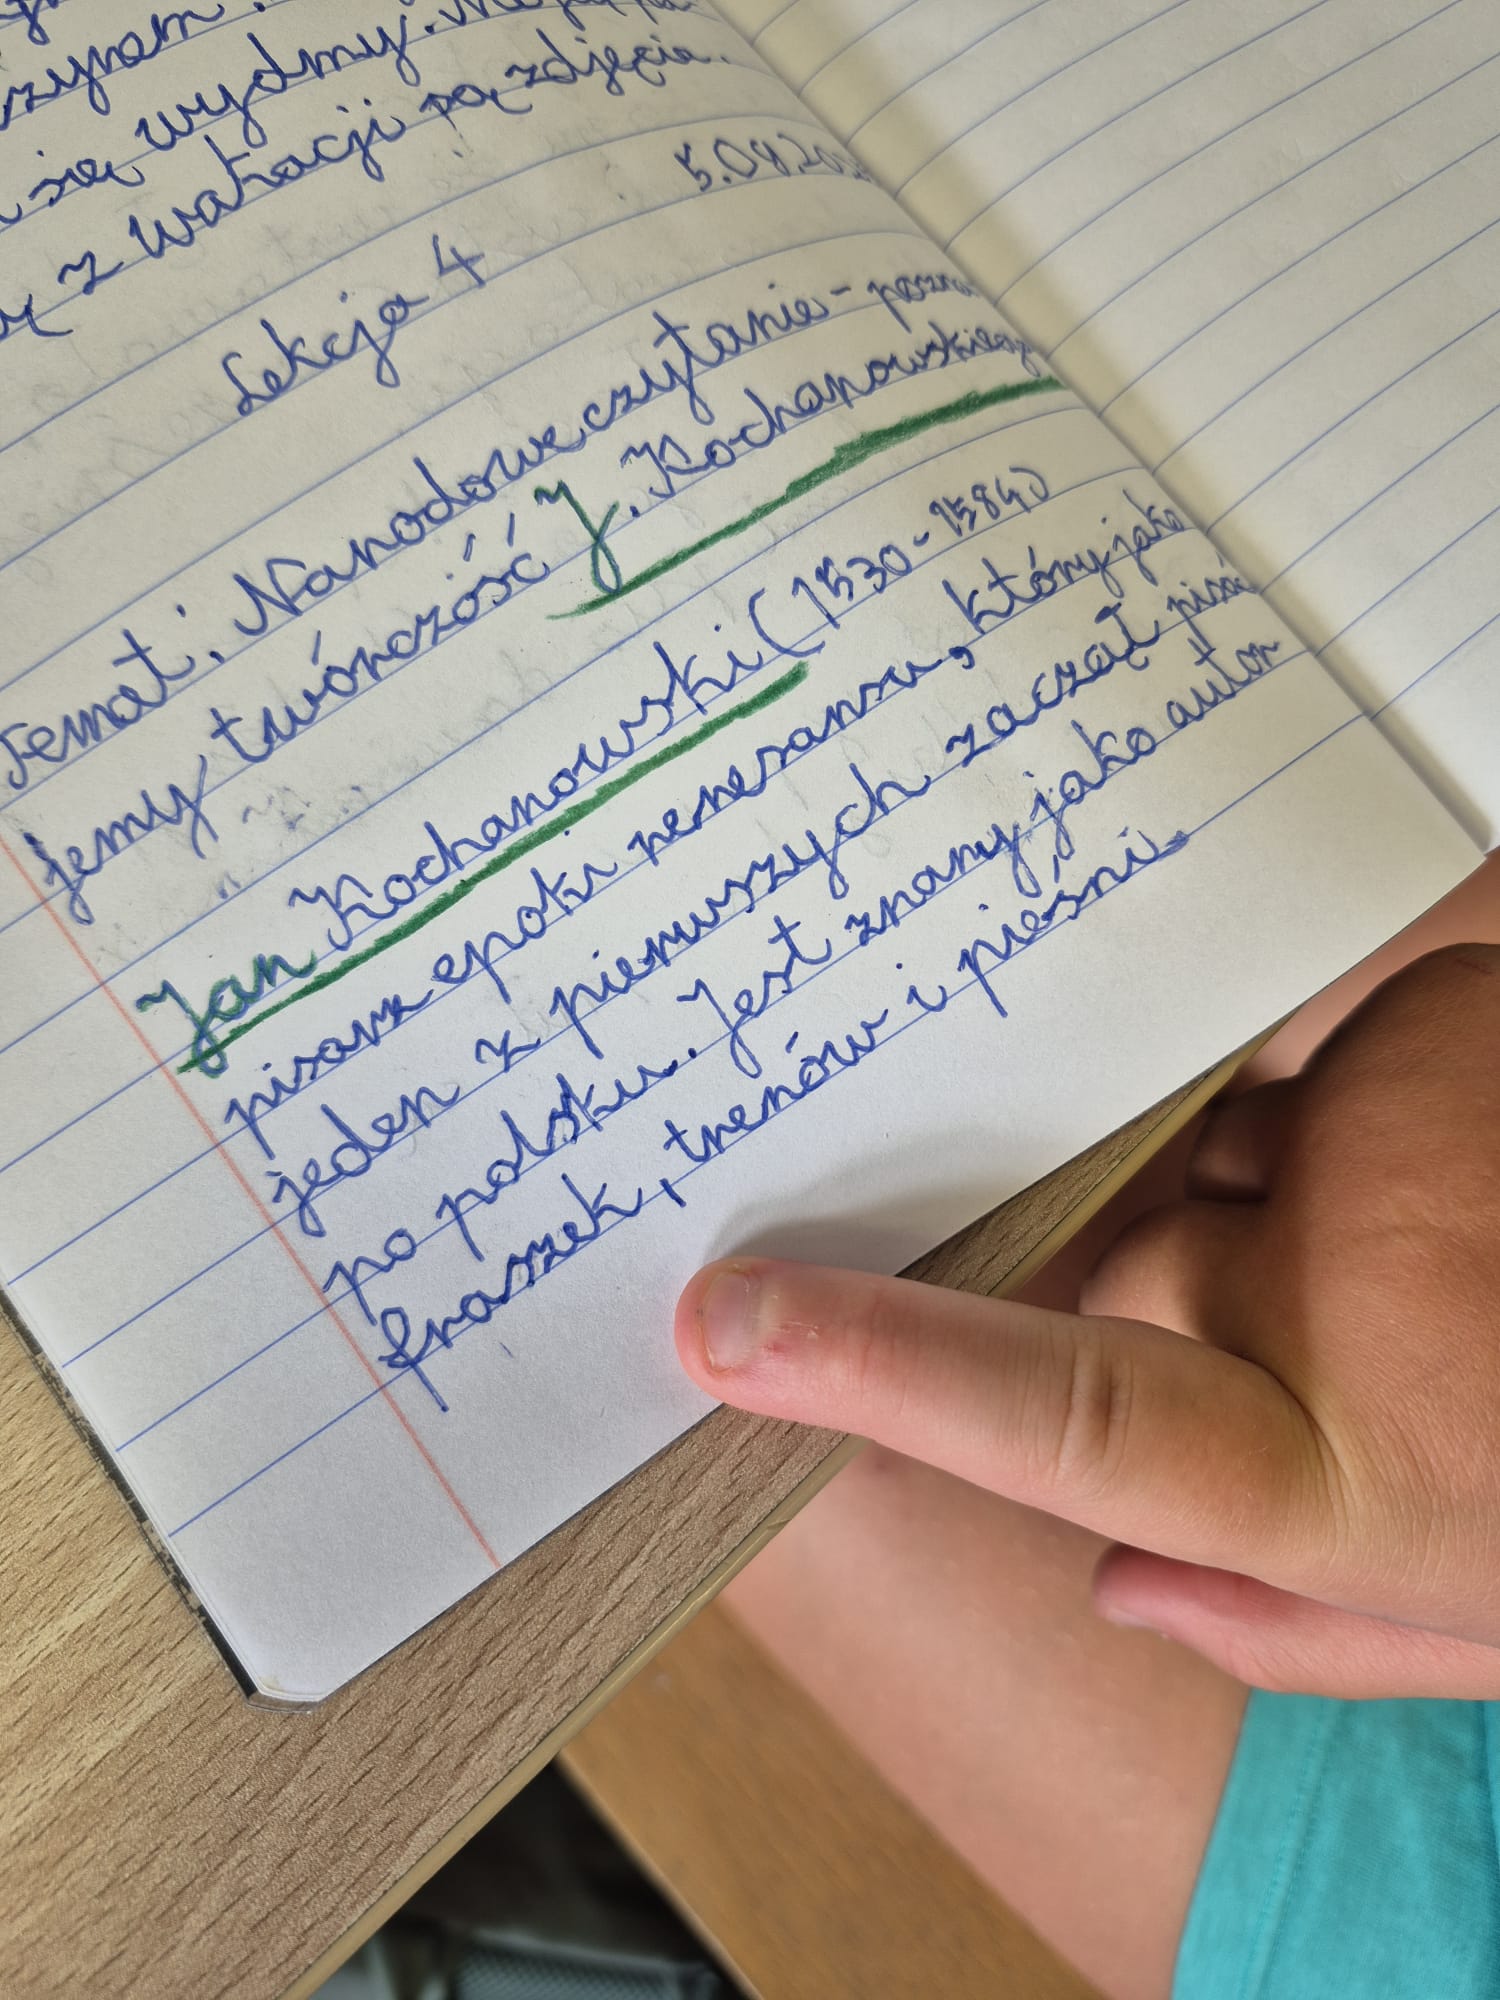 się wydmy.
z wakacji są zdjęcia.
Lekcja 4
Temat: Narodowe czytanie - pozna
jemy twórczość J. Kochanowskiego
Jan Kochanowski (1530-1584)
pisarz epoki renesansu, który jako
jeden z pierwszych zaczął pisać
po polsku. Jest znany jako autor
fraszek, trenów i pieśni.